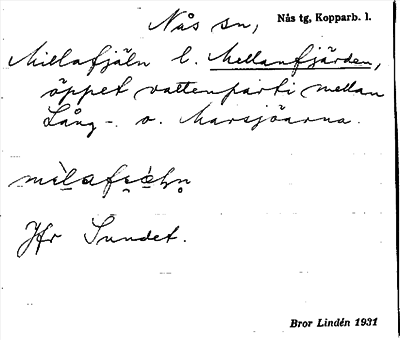 Nås sn, Nås tg, Kopparb. l.
Millafjäln l. Mellanfjärden,
öppet vattenparti mellan
Lång- o. Marsjöarna.
Jfr Sundet.
Bror Lindén 1931